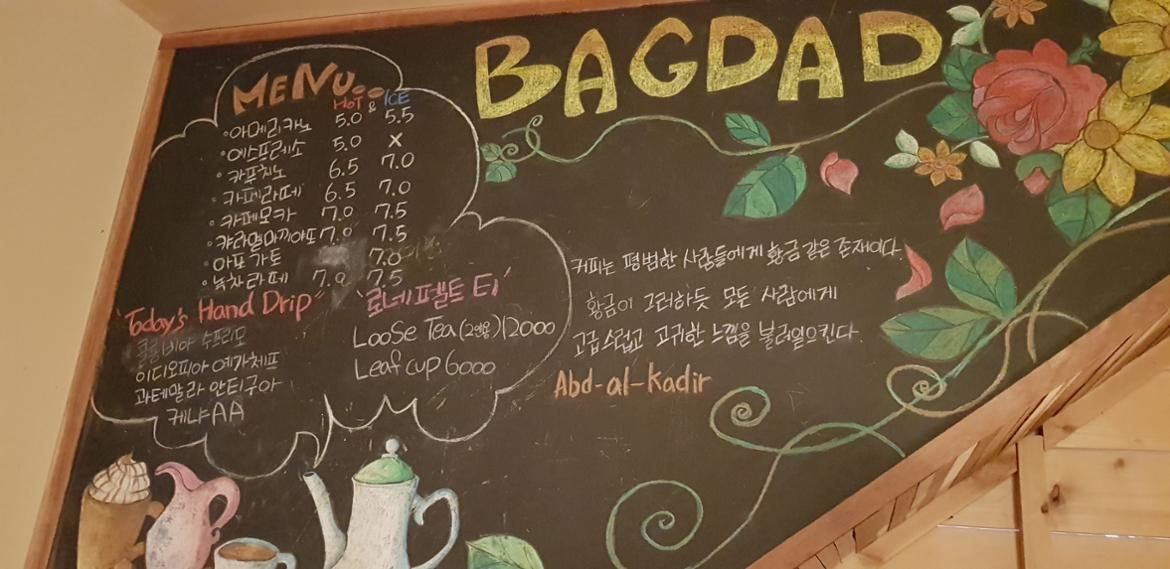 BAGDAD
MENU..
HOT & ICE
•아메리카노 5.0 5.5
•에스프레소 5.0 X
•카푸치노 6.5 7.0
•카페라떼 6.5 7.0
•카페모카 7.0 7.5
•캬라멜마끼아또 7.0 7.5
•아포가토 7.0
•녹차라떼 7.0 7.5
"Today's Hand Drip"
콜롬비아 수프리모
이디오피아 예가체프
과테말라 안티구아
케냐AA
"로네펠트 티"
Loose Tea (2인용) 12000
Leaf cup 6000
커피는 평범한 사람들에게 황금 같은 존재이다.
황금이 그러하듯 모든 사람에게
고급스럽고 고귀한 느낌을 불러일으킨다.
Abd-al-Kadir